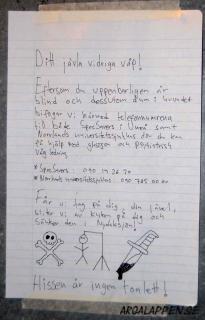 Ditt jävla vidriga våp!
Eftersom du uppenbarligen är
blind och dessutom dum i huvudet
bifogar vi härmed telefonnumrena
till både SpecSavers i Umeå samt
Norrlands universitetssjukhus där du kan
få hjälp med glasögon och psykiatrisk
vägledning.
* SpecSavers: 090 14 26 70
* Norrlands universitetssjukhus: 090 785 00 00
Får vi tag på dig, din jävel,
sliter vi av på dig och
i Nydalasjön!
Hissen är ingen toalett!
ARGALAPPEN.SE